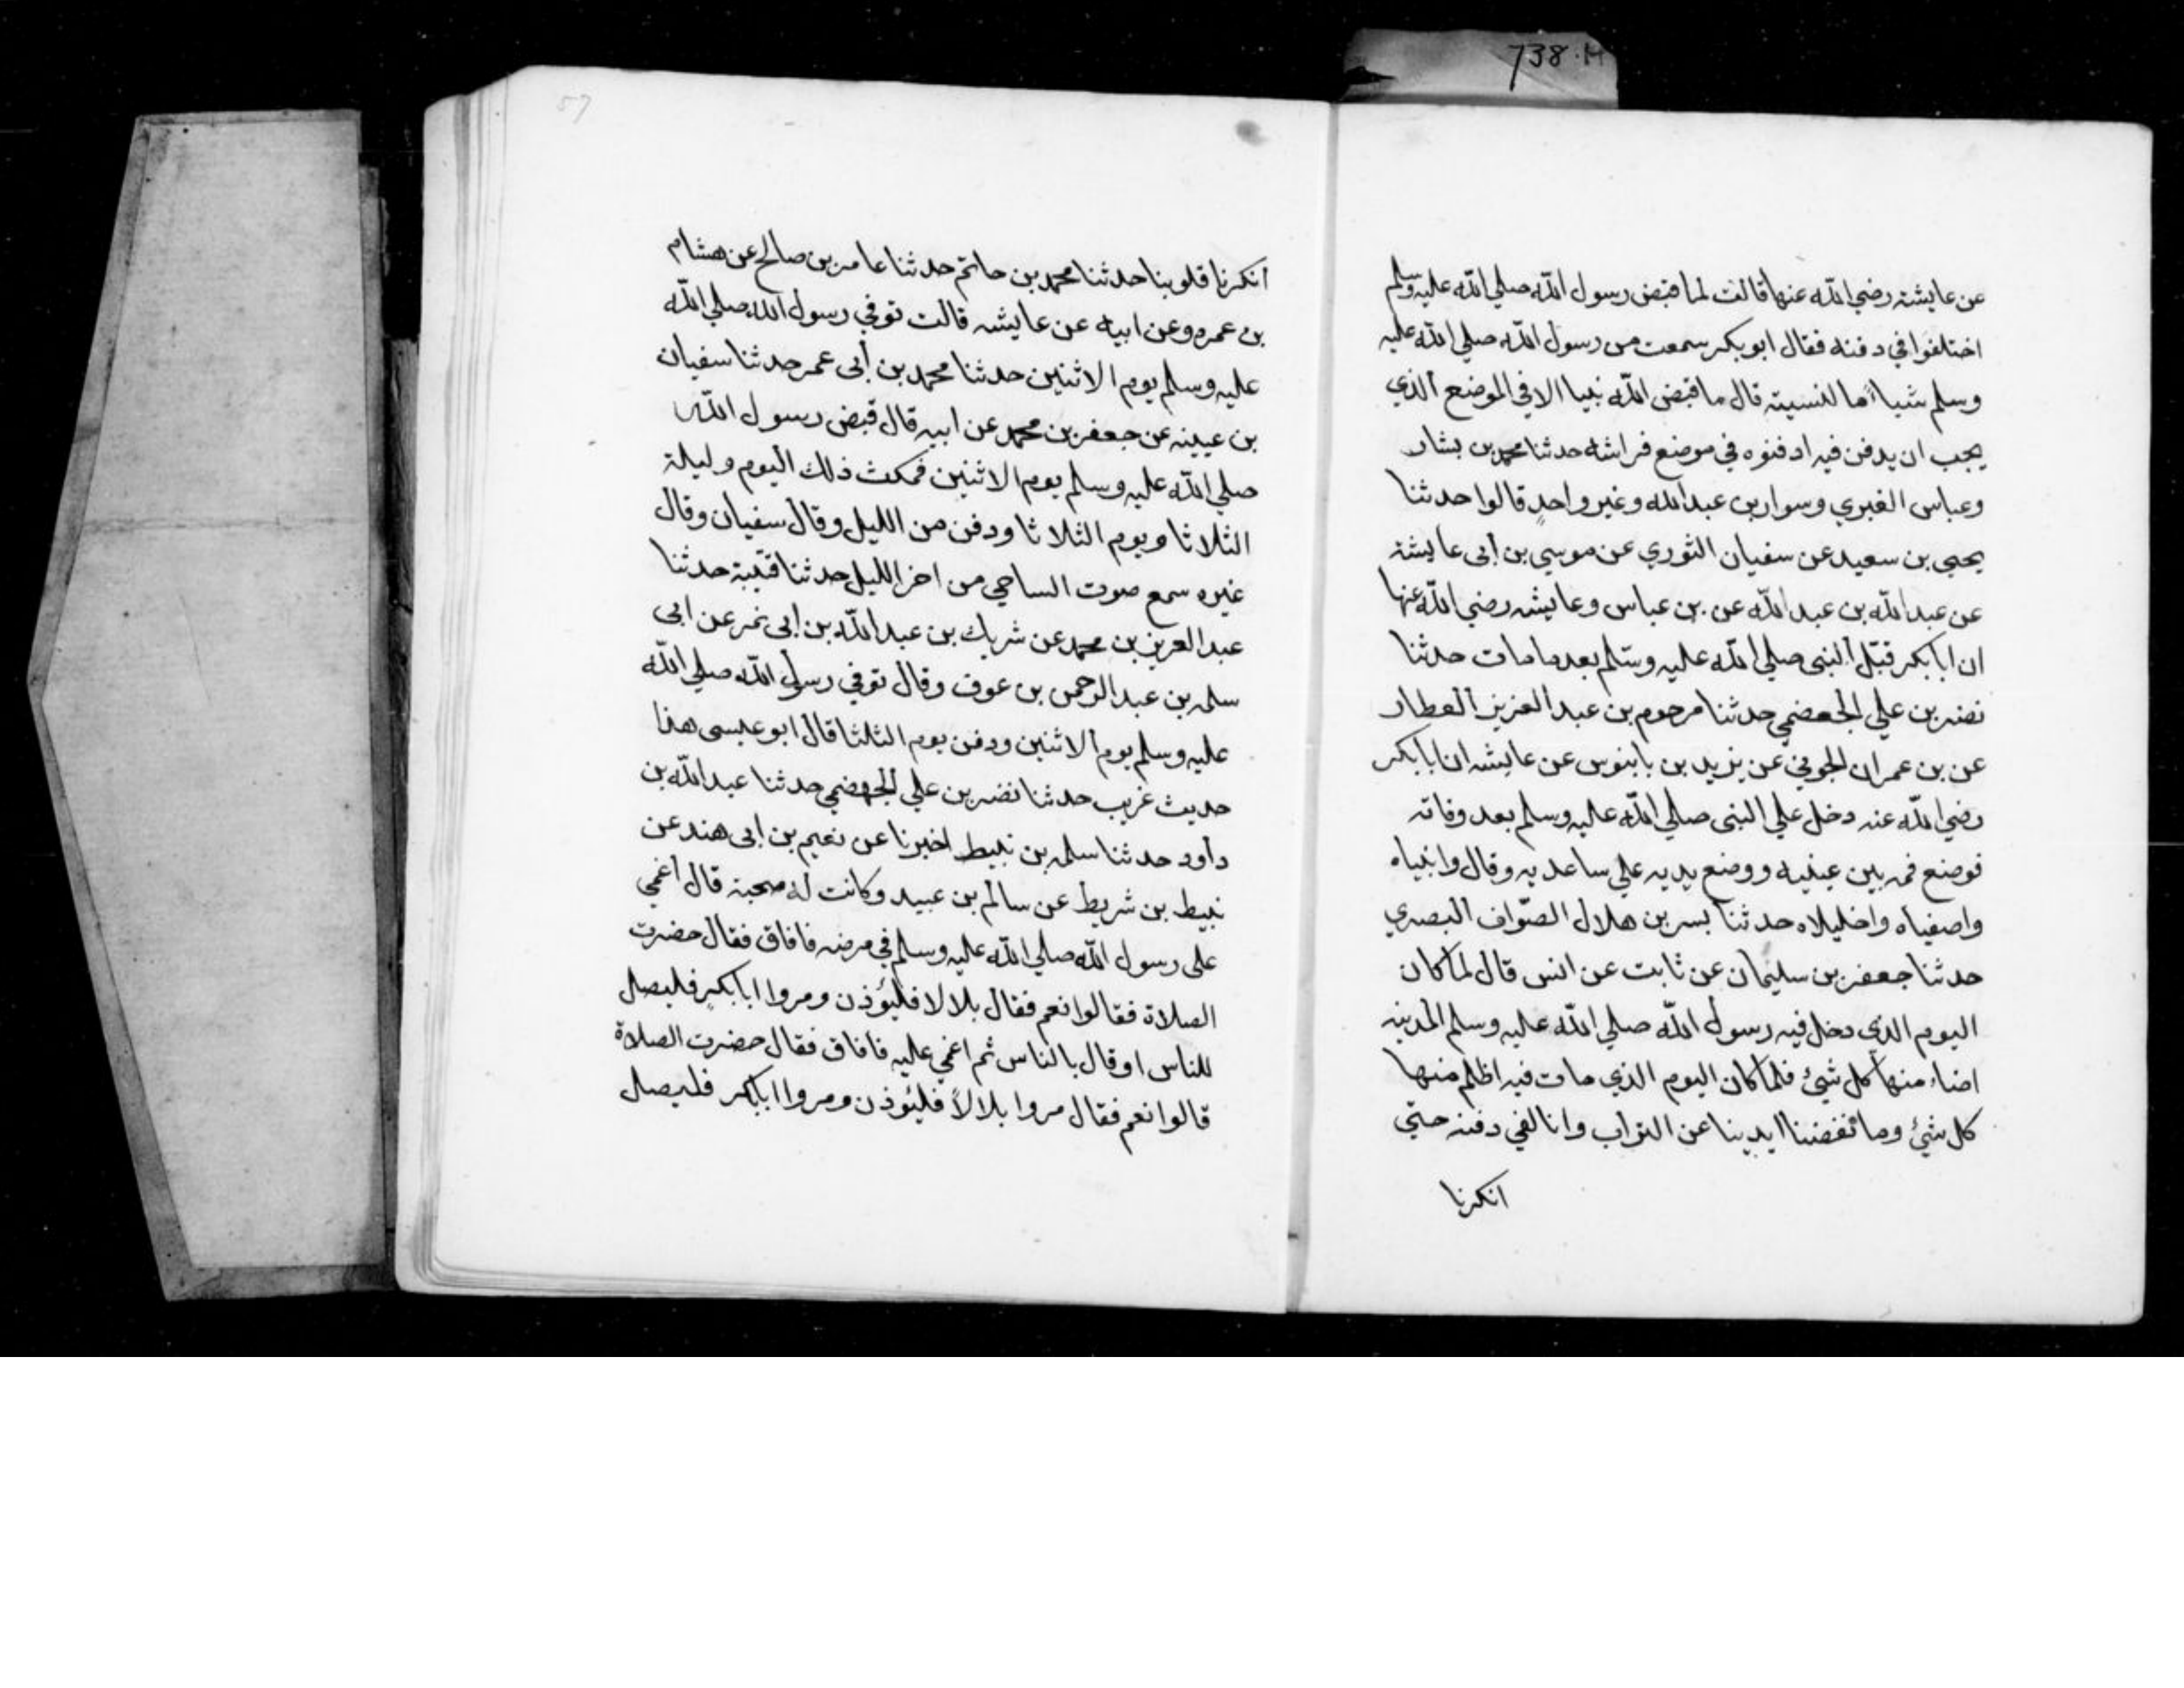 738.H
عن عايشة رضي الله عنها قالت لما قبض رسول الله صلي الله عليه وسلم
اختلفوا في دفنه فقال ابوبكر سمعت من رسول الله صلي الله عليه
وسلم شياً ما نسيته قال ما قبض الله نبيا الا في الموضع الذي
يجب ان يدفن فيه ادفنوه في موضع فراشه حدثنا محمد بن بشار
وعباس الغبري وسوار بن عبدالله وغير واحدٍ قالوا حدثنا
يحيي بن سعيد عن سفيان الثوري عن موسي بن أبى عايشة
عن عبدالله بن عبد الله عن بن عباس وعايشه رضي الله عنها
ان ابا بكر قبّل النبى صلي الله عليه وسّلم بعد ما مات حدثنا
نصر بن علي الجعضمي حدثنا مرحوم بن عبد العزيز العطار
عن بن عمران الجوني عن يزيد بن بابنوس عن عايشه ان ابا بكر
رضي الله عنه دخل علي النبى صلي الله عليه وسلم بعد وفاته
فوضع فمه بين عينيه ووضع يديه علي ساعديه وقال وانبياه
واصفياه واخليلاه حدثنا بسر بن هلال الصّواف البصري
حدثنا جعفر بن سليمان عن ثابت عن انس قال لما كان
اليوم الذي دخل فيه رسول الله صلي الله عليه وسلم المدينه
اضاء منها كل شيئ فلما كان اليوم الذي مات فيه اظلم منها
كل شيئ وما نفضنا ايدينا عن التراب وانا لفي دفنه حتّي
انكرنا
57
انكرنا قلوبنا حدثنا محمد بن حاتم حدثنا عامر بن صالح عن هشام
بن عمره وعن ابيه عن عايشه قالت توفي رسول الله صلي الله
عليه وسلم يوم الاثنين حدثنا محمد بن أبى عمر حدثنا سفيان
بن عيينه عن جعفر بن محمد عن ابيه قال قبض رسول الله
صلي الله عليه وسلم يوم الاثنين فمكث ذلك اليوم وليلة
الثلاثا ويوم الثلاثا ودفن من الليل وقال سفيان وقال
غيره سمع صوت الساحي من اخر الليل حدثنا قتيبة حدثنا
عبد العزيز بن محمد عن شريك بن عبد الله بن ابى نمر عن ابى
سلمه بن عبد الرحمن بن عوف وقال توفي رسول الله صلي الله
عليه وسلم يوم الاثنين ودفن يوم الثلثا قال ابو عيسى هذا
حديث غريب حدثنا نضر بن علي الجهضمي حدثنا عبد الله بن
دأود حدثنا سلمه بن نبيط اخبرنا عن نعيم بن ابى هند عن
نبيط بن شريط عن سالم بن عبيد وكانت له صحبة قال أغمي
على رسول الله صلي الله عليه وسلم في مرضه فافاق فقال حضرت
الصلاة فقالوا نعم فقال بلالا فليؤذن ومروا ابا بكرٍ فليصل
للناس او قال بالناس ثم اغمي عليه فافاق فقال حضرت الصلاة
قالوا نعم فقال مروا بلالاً فليئوذن ومروا ابابكر فليصل